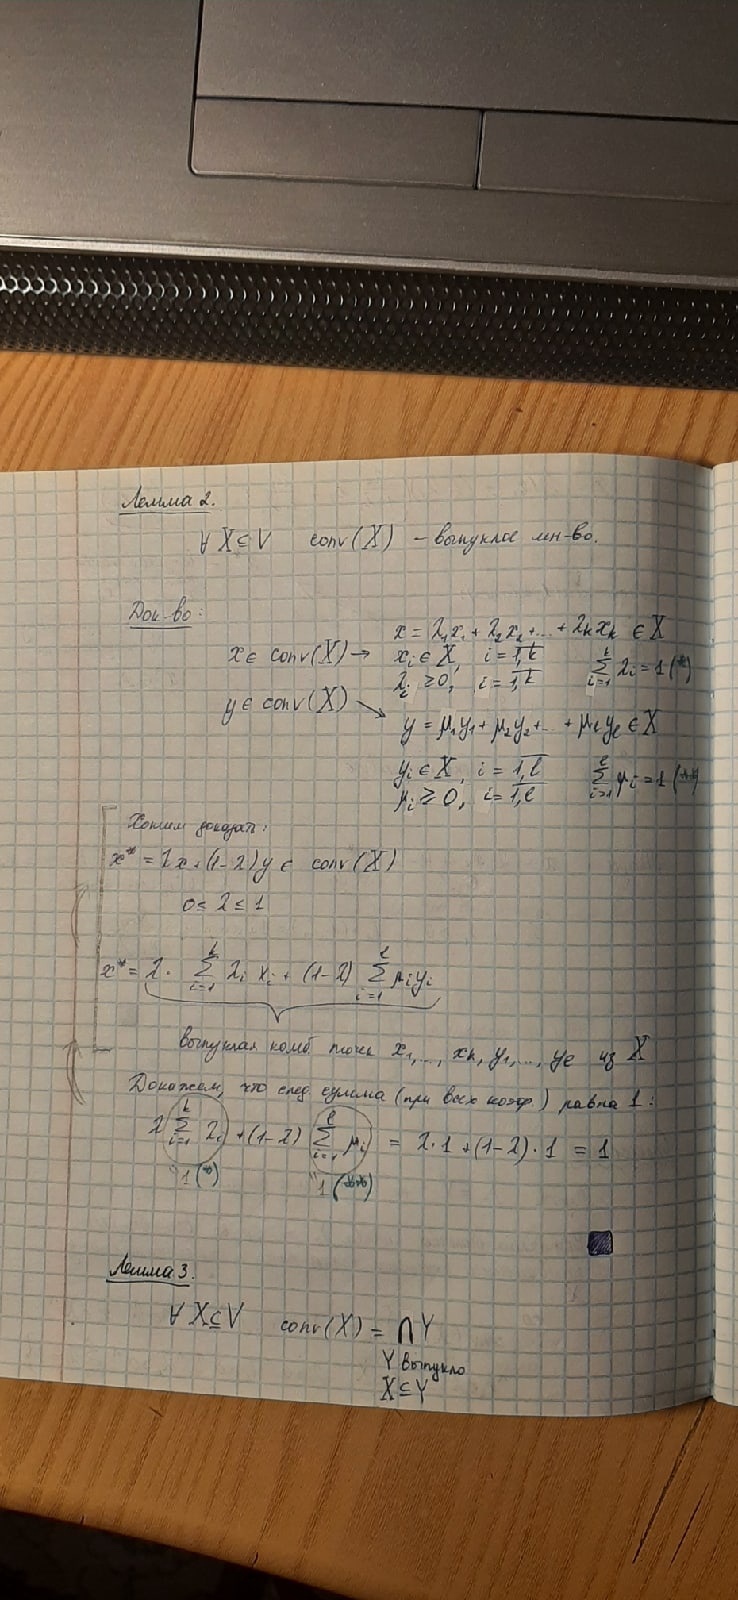 Лемма 2.
∀ X ⊆ V conv(X) – выпуклое мн-во.
Док-во:
x = λ₁x₁ + λ₂x₂ + ... + λₖxₖ ∈ X
x ∈ conv(X) → xᵢ ∈ X, i = 1,k
λᵢ ≥ 0, i = 1,k ∑ᵢ₌₁ᵏ λᵢ = 1 (*)
y ∈ conv(X)
y = μ₁y₁ + μ₂y₂ + ... + μₗyₗ ∈ X
yᵢ ∈ X, i = 1,l
μᵢ ≥ 0, i = 1,l ∑ᵢ₌₁ˡ μᵢ = 1 (**)
Хотим доказать:
x* = λx + (1-λ)y ∈ conv(X)
0 ≤ λ ≤ 1
x* = λ · ∑ᵢ₌₁ᵏ λᵢ xᵢ + (1-λ) ∑ᵢ₌₁ˡ μᵢyᵢ
выпуклая комб. точек x₁,..., xₖ, y₁,..., yₗ из X
Докажем, что след сумма (при всех коэф.) равна 1:
λ ∑ᵢ₌₁ᵏ λᵢ + (1-λ) ∑ᵢ₌₁ˡ μᵢ = λ·1 + (1-λ)·1 = 1
"1 (*) "1 (**)
Лемма 3.
∀ X ⊆ V conv(X) = ⋂ Y
Y выпукло
X ⊆ Y